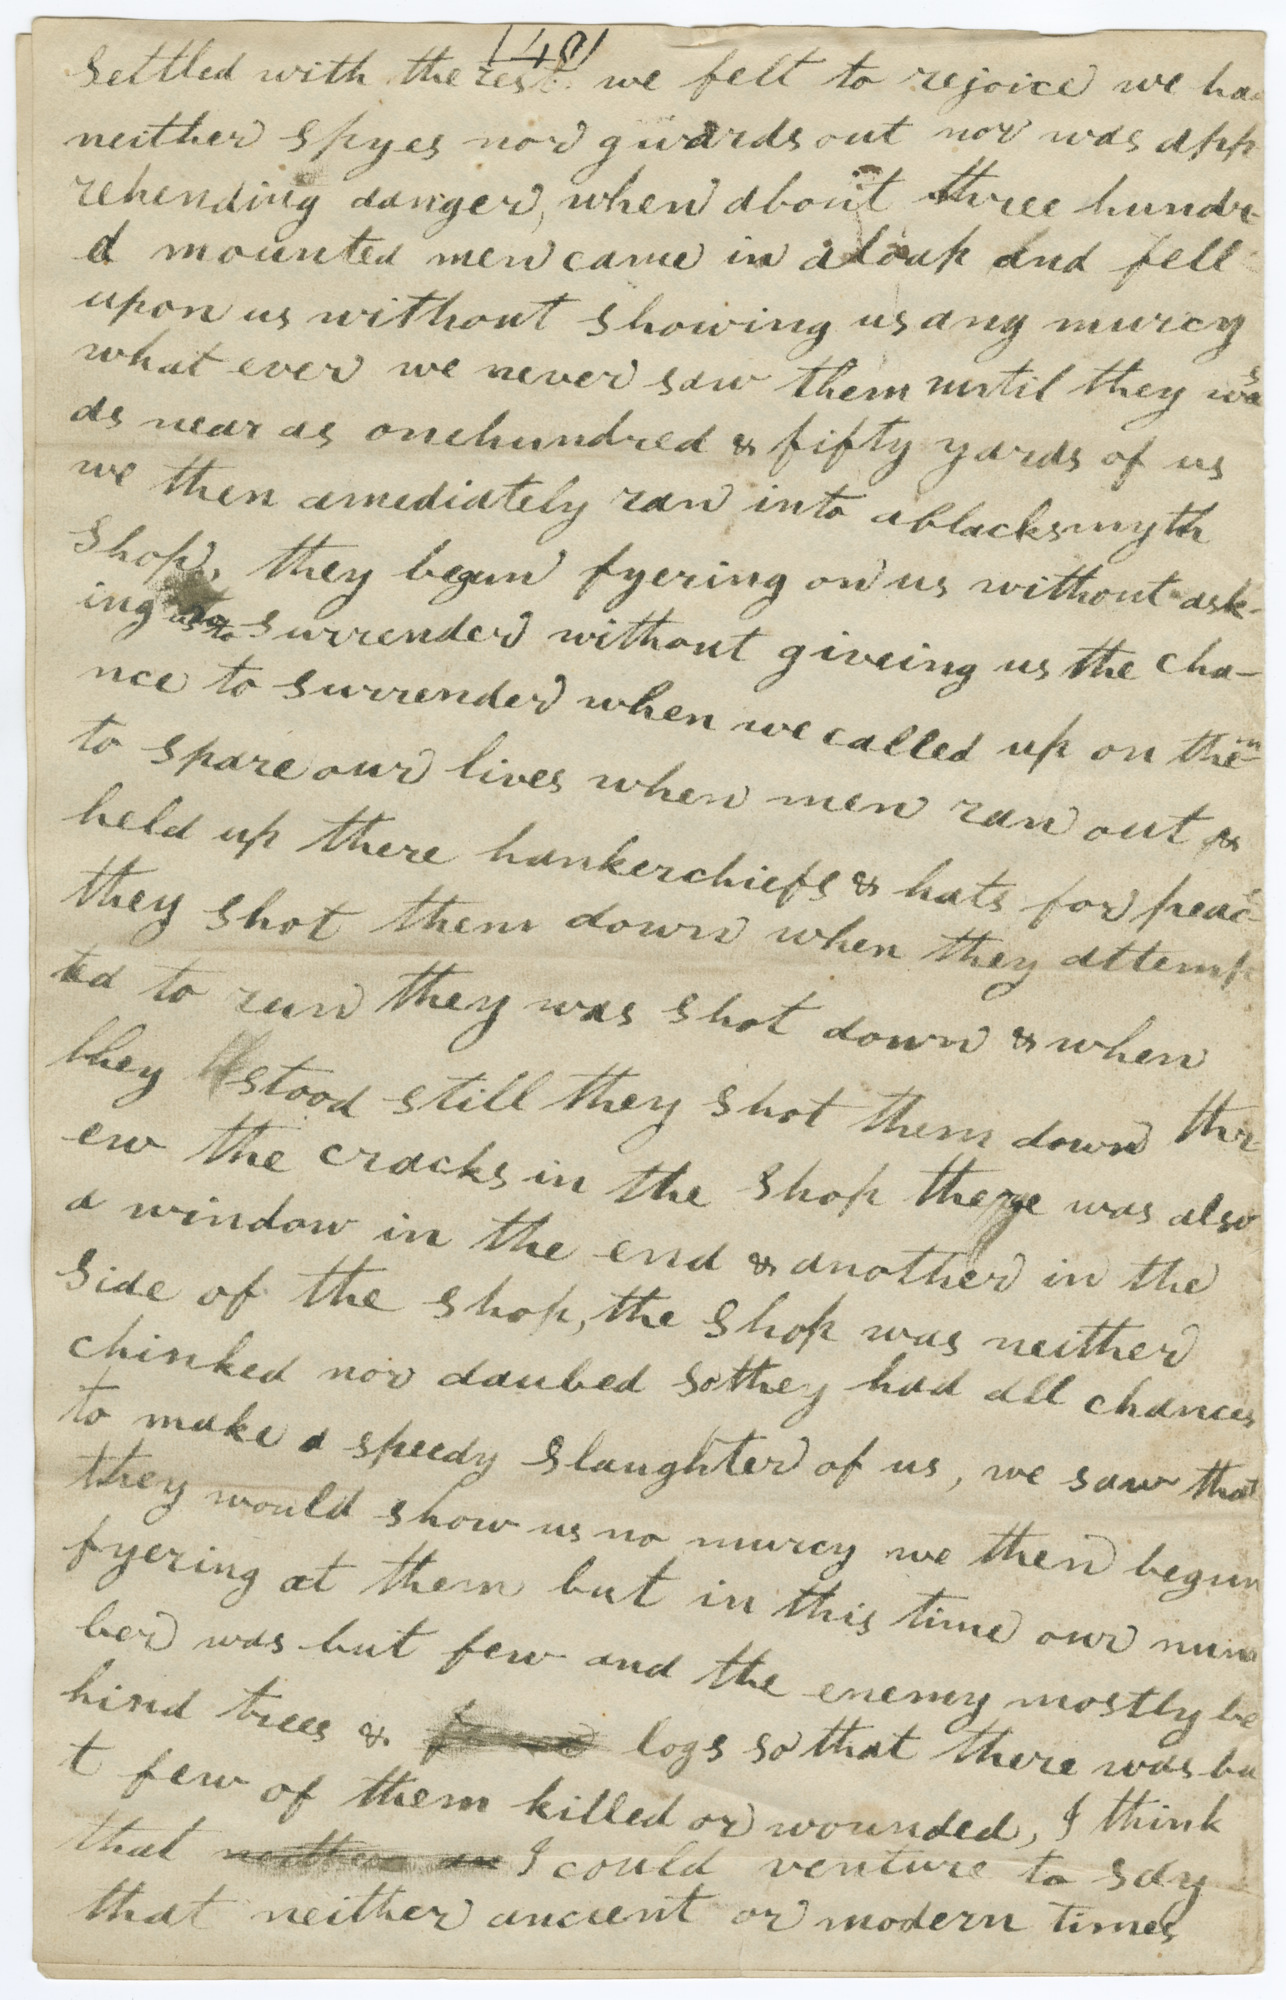 (48)
settled with the rest. we felt to rejoice we had
neither spyes nor guards out nor was app
rehending danger, when about three hundr-
ed mounted men came in a loap and fell
upon us without showing us any murcy
what ever we never saw them until they was
as near as onehundred & fifty yards of us
we then amediately ran into a blacksmyth
shop, they begun fyering on us without ask-
ing us to surrender without giveing us the cha-
nce to surrender when we called up on them
to spare our lives when men ran out &
held up there hankerchiefs & hats for peac
they shot them down when they attemp
ted to run they was shot down & when
they stood still they shot them down thr
ew the cracks in the shop there was also
a window in the end & another in the
side of the shop, the shop was neither
chinked nor daubed so they had all chances
to make a speedy slaughter of us, we saw that
they would show us no murcy we then begun
fyering at them but in this time our num
ber was but few and the enemy mostly be
hind trees & logs so that there was bu
t few of them killed or wounded, I think
that neither an I could venture to say
that neither ancient or modern times